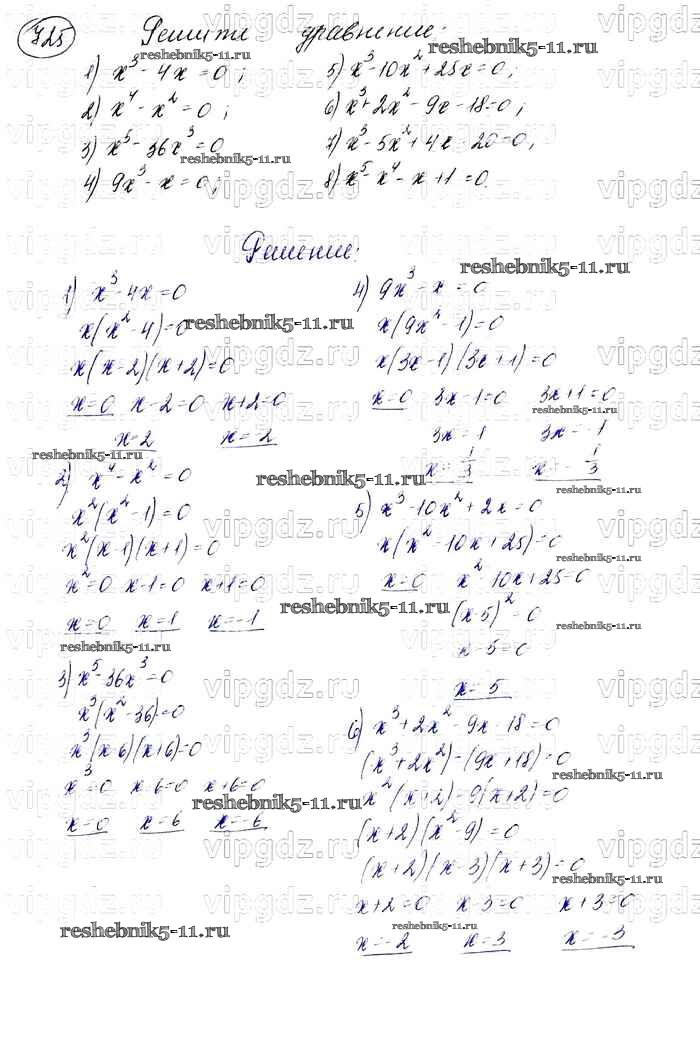 725 Решите уравнение:
1) x³ - 4x = 0;
2) x⁴ - x² = 0;
3) x⁵ - 36x³ = 0
4) 9x³ - x = 0;
5) x³ - 10x² + 25x = 0;
6) x³ + 2x² - 9x - 18 = 0;
7) x³ - 5x² + 4x - 20 = 0;
8) x⁵ - x⁴ - x + 1 = 0.
Решение:
1) x³ - 4x = 0
x(x² - 4) = 0
x(x - 2)(x + 2) = 0
x = 0 x - 2 = 0 x + 2 = 0
x = 2 x = -2
2) x⁴ - x² = 0
x²(x² - 1) = 0
x²(x - 1)(x + 1) = 0
x² = 0 x - 1 = 0 x + 1 = 0
x = 0 x = 1 x = -1
3) x⁵ - 36x³ = 0
x³(x² - 36) = 0
x³(x - 6)(x + 6) = 0
x³ = 0 x - 6 = 0 x + 6 = 0
x = 0 x = 6 x = -6
4) 9x³ - x = 0
x(9x² - 1) = 0
x(3x - 1)(3x + 1) = 0
x = 0 3x - 1 = 0 3x + 1 = 0
3x = 1 3x = -1
x = 1/3 x = -1/3
5) x³ - 10x² + 2x = 0
x(x² - 10x + 25) = 0
x = 0 x² - 10x + 25 = 0
(x - 5)² = 0
x - 5 = 0
x = 5
6) x³ + 2x² - 9x - 18 = 0
(x³ + 2x²) - (9x + 18) = 0
x²(x + 2) - 9(x + 2) = 0
(x + 2)(x² - 9) = 0
(x + 2)(x - 3)(x + 3) = 0
x + 2 = 0 x - 3 = 0 x + 3 = 0
x = -2 x = 3 x = -3
reshebnik5-11.ru
vipgdz.ru